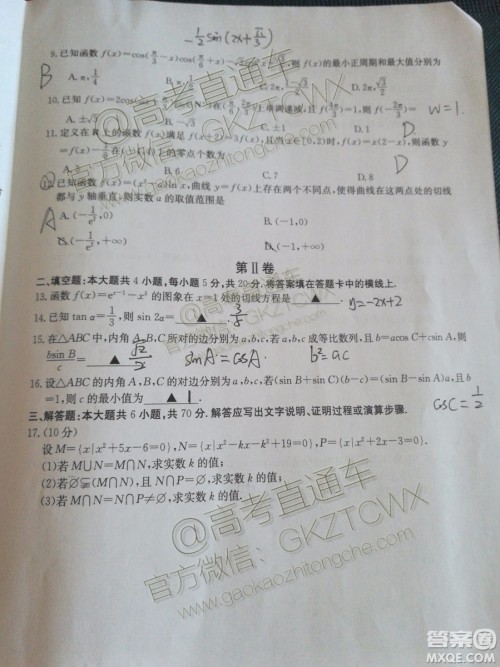 -1/2 sin(2x+π/3)
9.已知函数 f(x)=cos(π/3-x)cos(π/6+x)- 则f(x)的最小正周期和最大值分别为
B
A.π,1/4
10.已知 f(x)=2cos 上单调递减,且 f( )= ,则f(-2π/3)=
w=1.
A.±√3 B.-√3
11.定义在R上的函数 f(x)满足 f(x+2)=3f(x),且当 x∈[0,2)时,f(x)=x(2-x),则函数 y
=f(x)- 在 上的零点个数为
D
A.5 B.6 C.7 D.8
12.已知函数 f(x)=(x²- )ln x,曲线 y=f(x)上存在两个不同点,使得曲线在这两点处的切线
都与 y 轴垂直,则实数 a 的取值范围是
A
A.(-1/e²,0) B.(-1,0)
C.(-1/e²,+∞) D.(-1,+∞)
第Ⅱ卷
二、填空题:本大题共 4 小题,每小题 5 分,共 20 分.将答案填在答题卡中的横线上.
13.函数 f(x)=eˣ⁻¹-x³ 的图象在 x=1 处的切线方程是 ▲ . y=-2x+2
14.已知 tan α=1/3,则 sin 2α= ▲ . 3/5
15.在△ABC中,内角 A,B,C 所对的边分别为 a,b,c,若 a,b,c 成等比数列,且 b=acos C+csin A,则
bsin B/c= ▲ . √2/2 sinA=cosA. b²=ac
16.设△ABC 的内角 A,B,C 的对边分别为 a,b,c,若(sin B+sin C)(b-c)=(sin B-sin A)a,且 b
=1,则 c 的最小值为 ▲ . cosC=1/2
三、解答题:本大题共 6 小题,共 70 分.解答应写出文字说明、证明过程或演算步骤.
17.(10 分)
设 M={x|x²+5x-6=0},N={x|x²-kx-k²+19=0},P={x|x²+2x-3=0}.
(1)若 M∪N=M∩N,求实数 k 的值;
(2)若∅⫋(M∩N),且 N∩P=∅,求实数 k 的值;
(3)若 M∩N=N∩P≠∅,求实数 k 的值.
@高考直通车
官方微信:GKZTCWX
www.gaokaozhitongche.com
@高考直通车
官方微信:GKZTCWX
www.gaokaozhitongche.com
答案圈
MXQE.COM